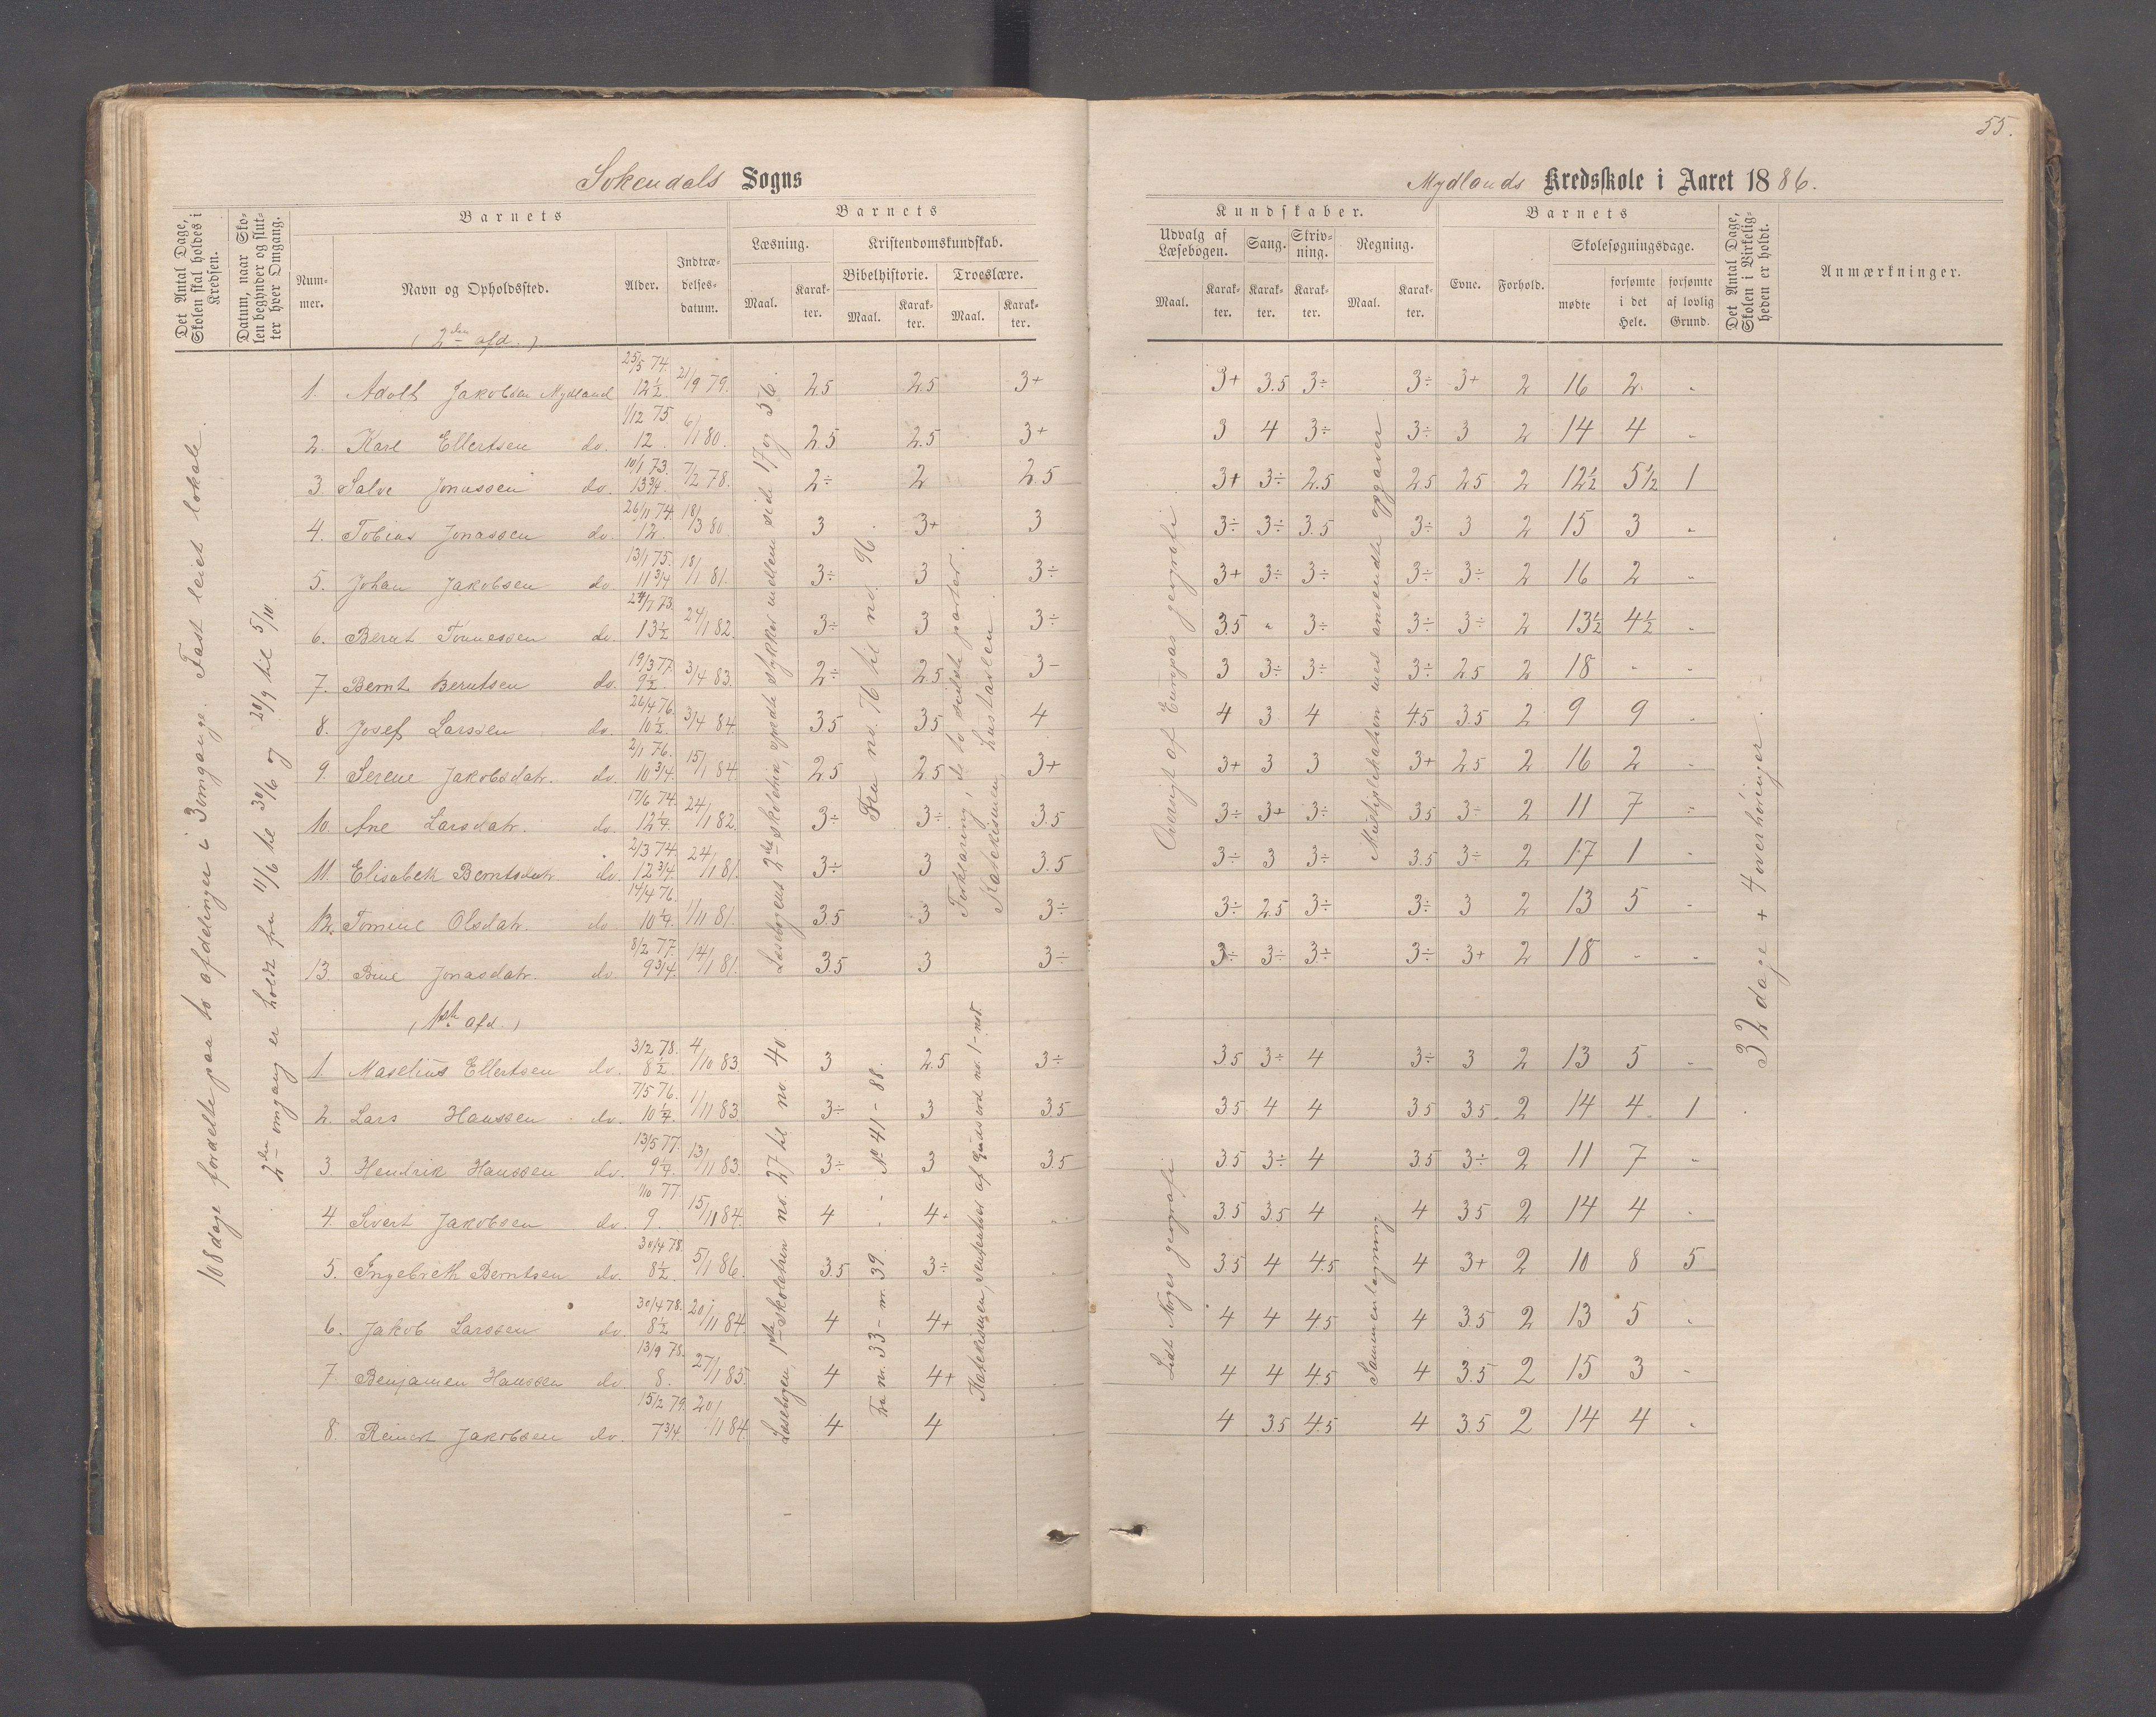 55.
Sokendals Sogns
Mydlands Kredsskole i Aaret 1886.
Det Antal Dage, Skolen skal holdes i Kredsen.
Datum, naar Skolen begynder og slutter hver Omgang.
Barnets
Nummer.
Navn og Opholdssted.
Alder.
Indtrædelsesdatum.
Barnets
Læsning.
Maal.
Karakter.
Kristendomskundskab.
Bibelhistorie.
Maal.
Karakter.
Troeslære.
Maal.
Karakter.
Kundskaber.
Udvalg af Læsebogen.
Maal.
Karakter.
Sang.
Karakter.
Skrivning.
Karakter.
Regning.
Maal.
Karakter.
Barnets
Evne.
Forhold.
Skolesøgningsdage.
mødte
forsømte i det Hele.
forsømte af lovlig Grund.
Det Antal Dage, Skolen i Virkeligheden er holdt.
Anmærkninger.
108 dage fordelte paa to afdelinger i 3 omgange. Fast leiet lokale.
2den omgang er holdt fra 11/6 til 30/6 og 20/9 til 5/10.
(2den afd.)
1. Adolf Jakobsen Mydland 25/5 74. 12½ 21/9 79. 2.5 2.5 3+ 3+ 3.5 3÷ 3÷ 3+ 2 16 2 "
2. Karl Ellertsen do. 1/12 75. 12. 6/1 80. 2.5 2.5 3+ 3 4 3÷ 3÷ 3 2 14 4 "
3. Salve Jonassen do. 10/1 73. 13¾. 7/2 78. 2÷ 2 2.5 3+ 3÷ 2.5 2.5 2.5 2 12½ 5½ 1
4. Tobias Jonassen do. 26/11 74. 12. 18/3 80. 3 3+ 3 3÷ 3÷ 3.5 3÷ 3 2 15 3 "
5. Johan Jakobsen do. 13/1 75. 11¾ 18/1 81. 3÷ 3 3÷ 3+ 3÷ 3÷ 3÷ 3÷ 2 16 2 "
6. Bernt Tønnessen do. 24/7 73. 13½ 24/1 82. 3÷ 3 3÷ 3.5 " 3÷ 3÷ 3÷ 2 13½ 4½ "
7. Bernt Berntsen do. 19/3 77. 9½. 3/4 83. 2÷ 2.5 3- 3 3÷ 3÷ 3÷ 2.5 2 18 - -
8. Josef Larssen do. 26/4 76. 10½. 3/4 84. 3.5 3.5 4 4 3 4 4.5 3.5 2 9 9 "
9. Serene Jakobsdatr. do. 2/1 76. 10¾. 15/1 84. 2.5 2.5 3+ 3+ 3 3 3+ 2.5 2 16 2 "
10. Ane Larsdatr. do. 17/6 74. 12¼. 24/1 82. 3÷ 3÷ 3.5 3÷ 3+ 3÷ 3.5 3÷ 2 11 7 "
11. Elisabeth Berntsdatr. do. 2/3 74. 12¾. 24/1 81. 3÷ 3 3.5 3÷ 3 3÷ 3.5 3÷ 2 17 1 "
12. Tomine Olsdatr. do. 14/4 76. 10¼. 1/11 81. 3.5 3 3÷ 3÷ 2.5 3÷ 3÷ 3 2 13 5 "
13. Bine Jonasdatr. do. 8/2 77. 9¾. 14/1 81. 3.5 3 3÷ 3÷ 3÷ 3÷ 3÷ 3+ 2 18 - -
Læsebogens 2det skoletrin, spredte stykker mellem side 17 og 56.
Fra no. 76 til no. 96.
Forklaring, de to sidste parter.
Katekismen, hustavlen.
Oversigt af Europas geografi.
Multiplikation med anvendte opgaver
32 dage + 4 overhøringer.
(1ste afd.)
1. Maselius Ellertsen do. 3/2 78. 8½. 4/10 83. 3 2.5 3÷ 3.5 3÷ 4 3÷ 3 2 13 5 "
2. Lars Hanssen do. 7/5 76. 10¼. 1/11 83. 3÷ 3 3.5 3.5 4 4 3.5 3.5 2 14 4 1
3. Hendrik Hanssen do. 13/5 77. 9¼. 13/11 83. 3÷ 3 3.5 3.5 3÷ 4 3.5 3÷ 2 11 7 "
4. Sivert Jakobsen do. 1/10 77. 9. 15/11 84. 4 4+ " 3.5 3.5 4 4 3.5 2 14 4 "
5. Ingebreth Berntsen do. 30/4 78. 8½. 5/1 86. 3.5 3÷ " 3.5 4 4.5 4 3+ 2 10 8 5
6. Jakob Larssen do. 30/4 78. 8½ 20/11 84. 4 4+ " 4 4 4.5 4 3.5 2 13 5 "
7. Benjamen Hanssen do. 13/9 78. 8. 27/1 85. 4 4+ " 4 4 4.5 4 3.5 2 15 3 "
8. Reinert Jakobsen do. 15/2 79. 7¾. 20/11 84. 4 4 " 4 3.5 4.5 4 3.5 2 14 4 "
Læsebogen, 1ste skoletrin no. 27 til no. 40.
No 41-88.
Fra nr. 33 - nr. 39.
Katekismen, sentenser af Guds ord no. 1-
Lidt Norges geografi
Sammenlægning